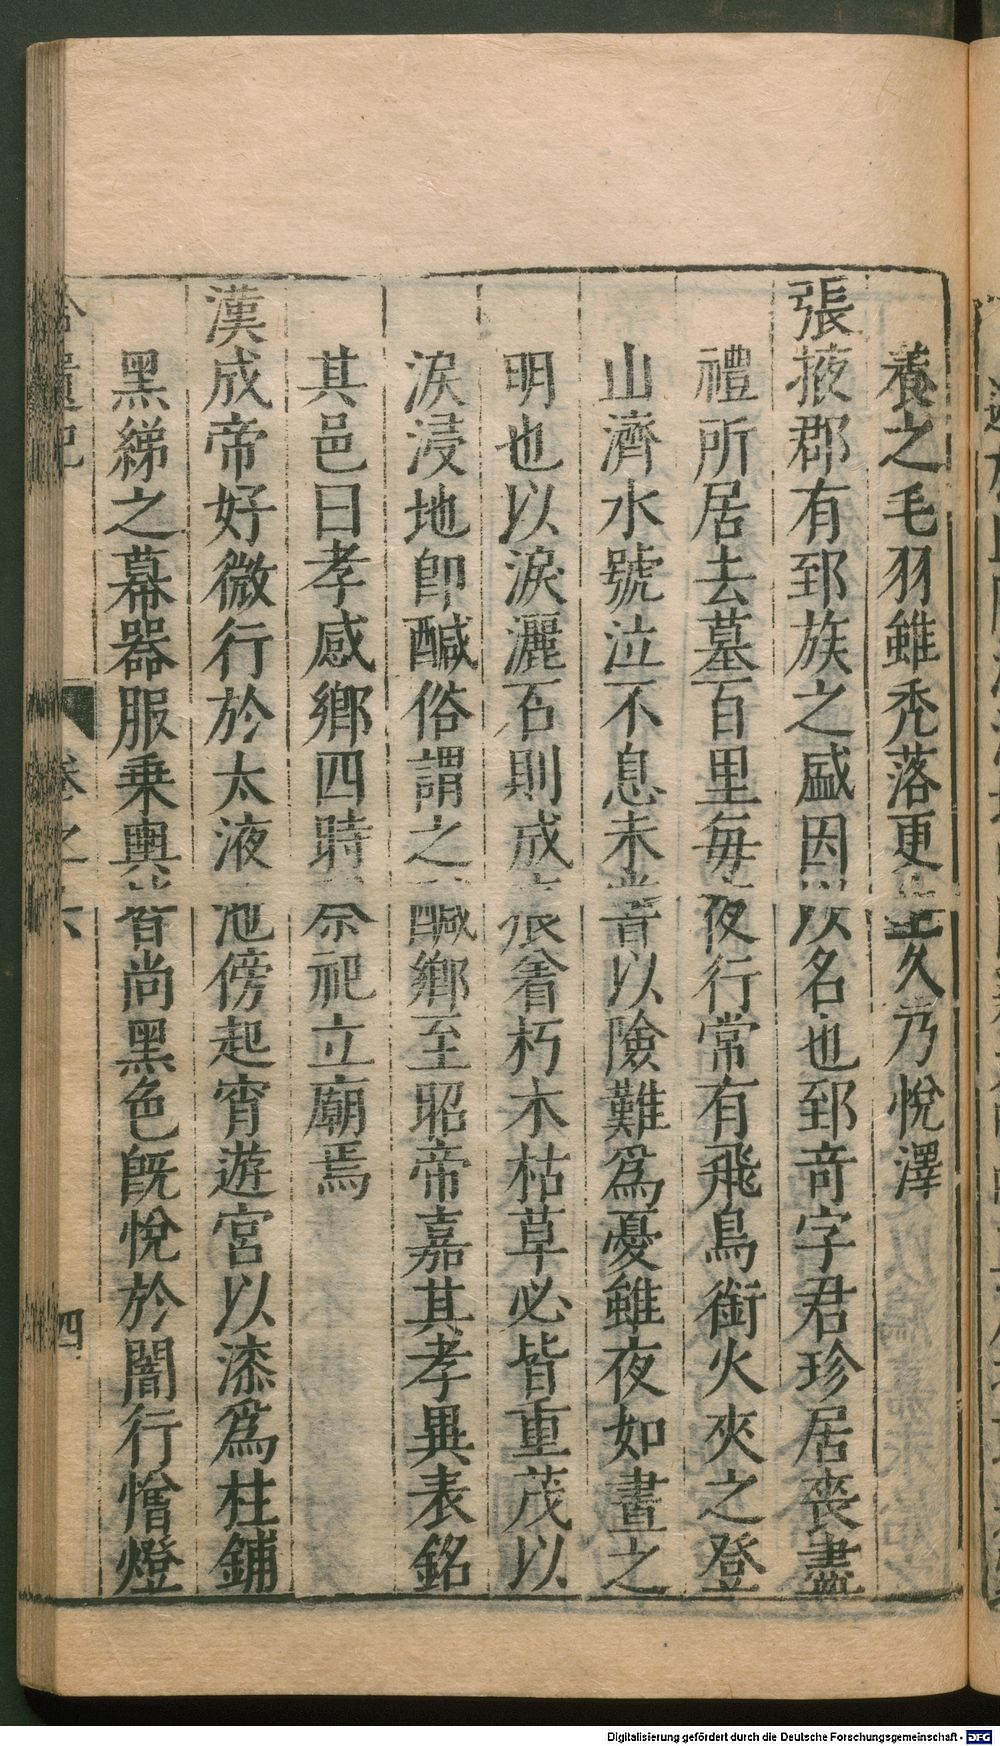 養之毛羽雖禿落更生久乃悅澤
張掖郡有郅族之盛因以名也郅竒字君珍居喪盡
禮所居去墓百里毎夜行常有飛鳥銜火夾之登
山濟水號泣不息未嘗以險難爲憂雖夜如晝之
明也以淚灑石則成痕著朽木枯草必皆重茂以
淚浸地卽醎俗謂之醎鄉至昭帝嘉其孝異表銘
其邑曰孝感鄉四時祭祀立廟焉
漢成帝好微行於太液池傍起宵遊宮以漆爲柱鋪
黑綈之幕器服乗輿皆尚黑色旣悅於闇行憎燈
拾遺記
卷之六
四
Digitalisierung gefördert durch die Deutsche Forschungsgemeinschaft - DFG